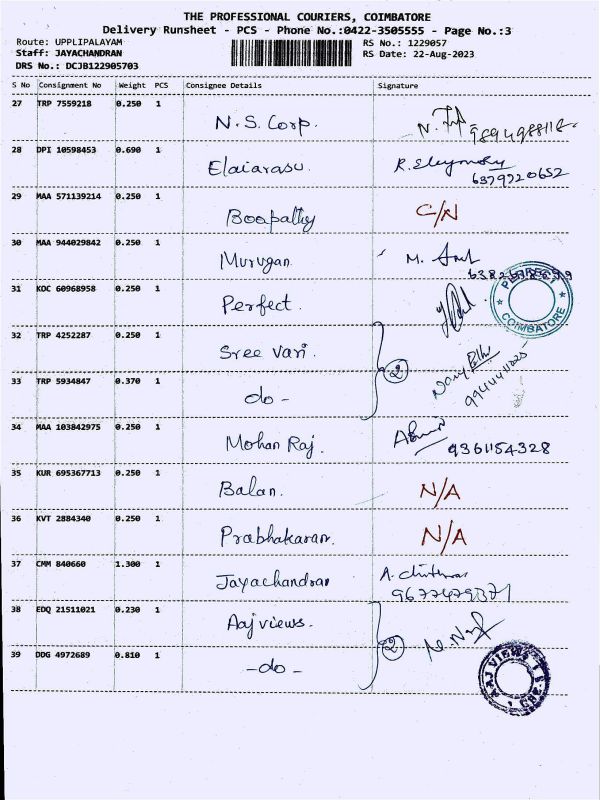 THE PROFESSIONAL COURIERS, COIMBATORE
Delivery Runsheet - PCS - Phone No.:0422-3505555 - Page No.:3
Route: UPPLIPALAYAM RS No.: 1229057
Staff: JAYACHANDRAN RS Date: 22-Aug-2023
DRS No.: DCJB122905703
S No Consignment No Weight PCS Consignee Details Signature
27 TRP 7559218 0.250 1 N.S. Corp.
28 DPI 10598453 0.690 1 Elaiarasu. 6379920652
29 MAA 571139214 0.250 1 Boopathy C/N
30 MAA 944029842 0.250 1 Murugan. M.
31 KOC 60968958 0.250 1 Perfect.
PERFECT COIMBATORE
32 TRP 4252287 0.250 1 Sree Vari.
2
33 TRP 5934847 0.370 1 do -
34 MAA 103842975 0.250 1 Mohan Raj. 9361154328
35 KUR 695367713 0.250 1 Balan. N/A
36 KVT 2884340 0.250 1 Prabhakaran. N/A
37 CMM 840660 1.300 1 Jayachandran
38 EDQ 21511021 0.230 1 Aaj views.
2
39 DDG 4972689 0.810 1 - do -
AAJ VIEWS